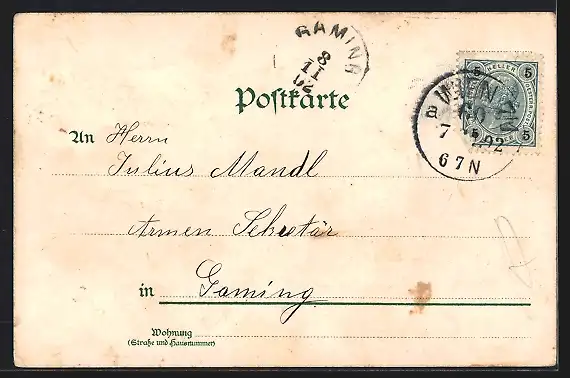 GAMING
8
11
02
Postkarte
HELLER
5 5
WIEN
a
7
02
6 7 N
5 5
An Herrn
Julius Mandl
Armen Sekretär
in Gaming
Wohnung
(Straße und Hausnummer)